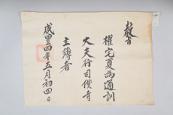 敎旨
權宅夏爲通訓
大夫行司僕寺
主簿者
咸豊四年五月初四日